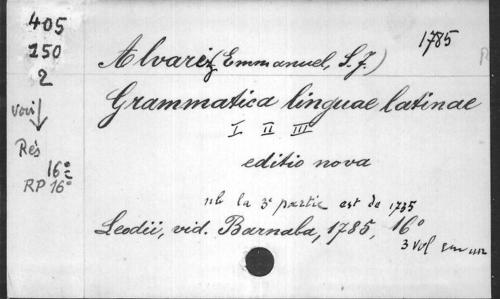 405
150
2
voir
Rés
16°
RP 16°
1785
Alvarez (Emmanuel, S.J.)
Grammatica linguae latinae
I II III
editio nova
nb la 3e partie est de 1735
Leodii, vid. Barnaba, 1785, 16°
3 vol en un